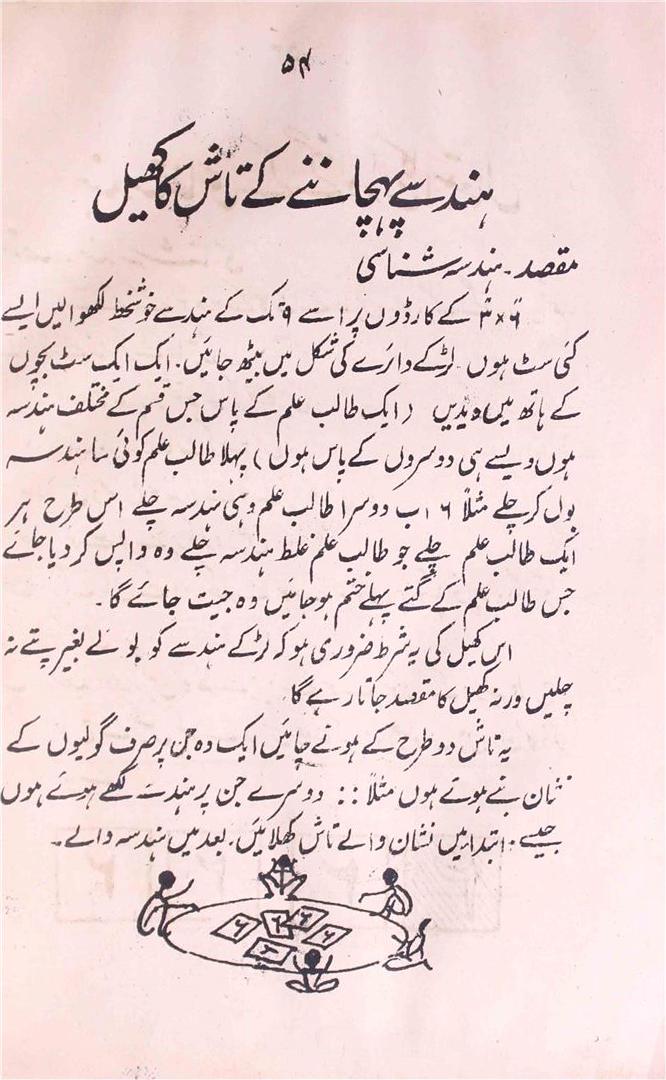 ۵۴
ہندسے پہچاننے کے تاش کا کھیل
مقصد۔ ہندسہ شناسی
۳×۶ کے کارڈوں پر ا سے ۹ تک کے ہندسے خوشخط لکھوا لیں ایسے
کئی سٹ ہوں۔ لڑکے دائرے کی شکل میں بیٹھ جائیں۔ ایک ایک سٹ بچوں
کے ہاتھ میں دیدیں (ایک طالب علم کے پاس جس قسم کے مختلف ہندسہ
ہوں ویسے ہی دوسروں کے پاس ہوں) پہلا طالب علم کوئی سا ہندسہ
بول کر چلے مثلاً ۶ اب دوسرا طالب علم وہی ہندسہ چلے اس طرح ہر
ایک طالب علم چلے جو طالب علم غلط ہندسہ چلے وہ واپس کر دیا جائے
جس طالب علم کے گتے پہلے ختم ہو جائیں وہ جیت جائے گا۔
اس کھیل کی یہ شرط ضروری ہو کہ لڑکے ہندسے کو بولے بغیر پتے نہ
چلیں ورنہ کھیل کا مقصد جاتا رہے گا
یہ تاش دو طرح کے ہونے چاہئیں ایک وہ جن پر صرف گولیوں کے
نشان بنے ہوئے ہوں مثلاً :: دوسرے جن پر ہندسے لکھے ہوئے ہوں
جیسے۔ ابتدا میں نشان والے تاش کھلائیں۔ بعد میں ہندسہ والے۔
۶ ۶ ۶ ۶